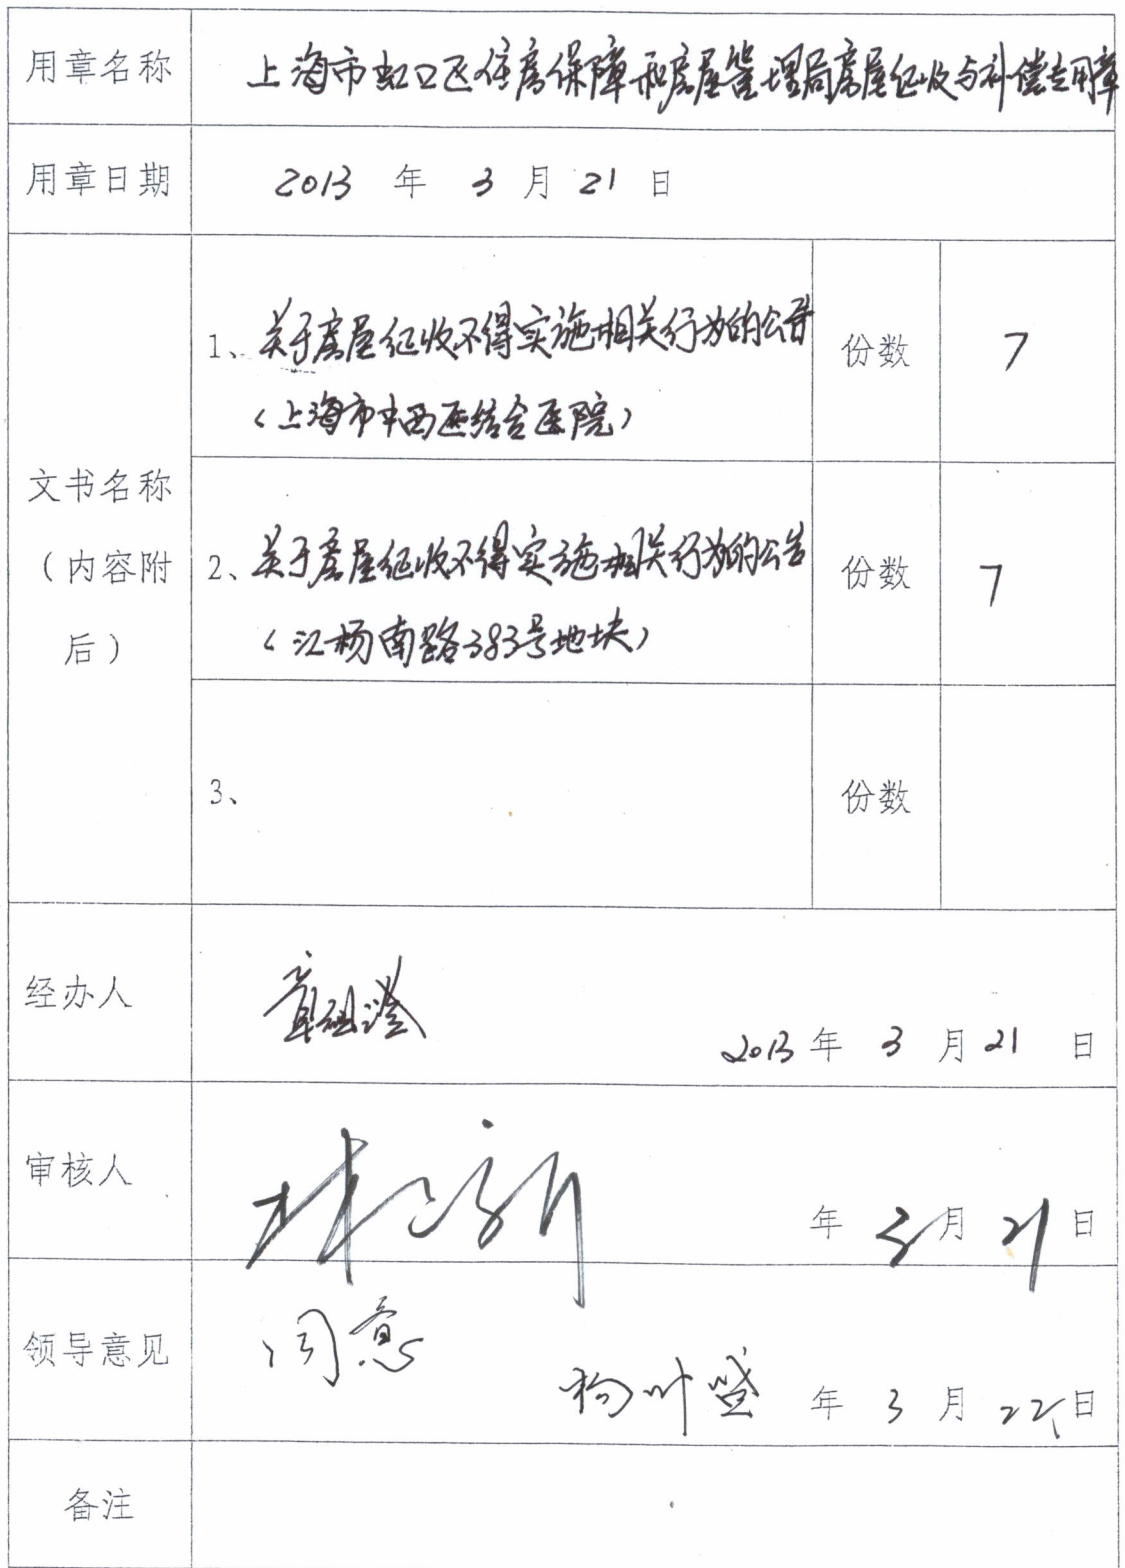 用章名称 上海市虹口区住房保障和房屋管理局房屋征收与补偿专用章
用章日期 2013 年 3 月 21 日
文书名称（内容附后）
1、关于房屋征收不得实施相关行为的公告 份数 7
（上海市中西医结合医院）
2、关于房屋征收不得实施相关行为的公告 份数 7
（江杨南路383号地块）
3、 份数
经办人 章祖澄
2013 年 3 月 21 日
审核人
年 3 月 21 日
领导意见 同意
杨叶盛 年 3 月 22 日
备注